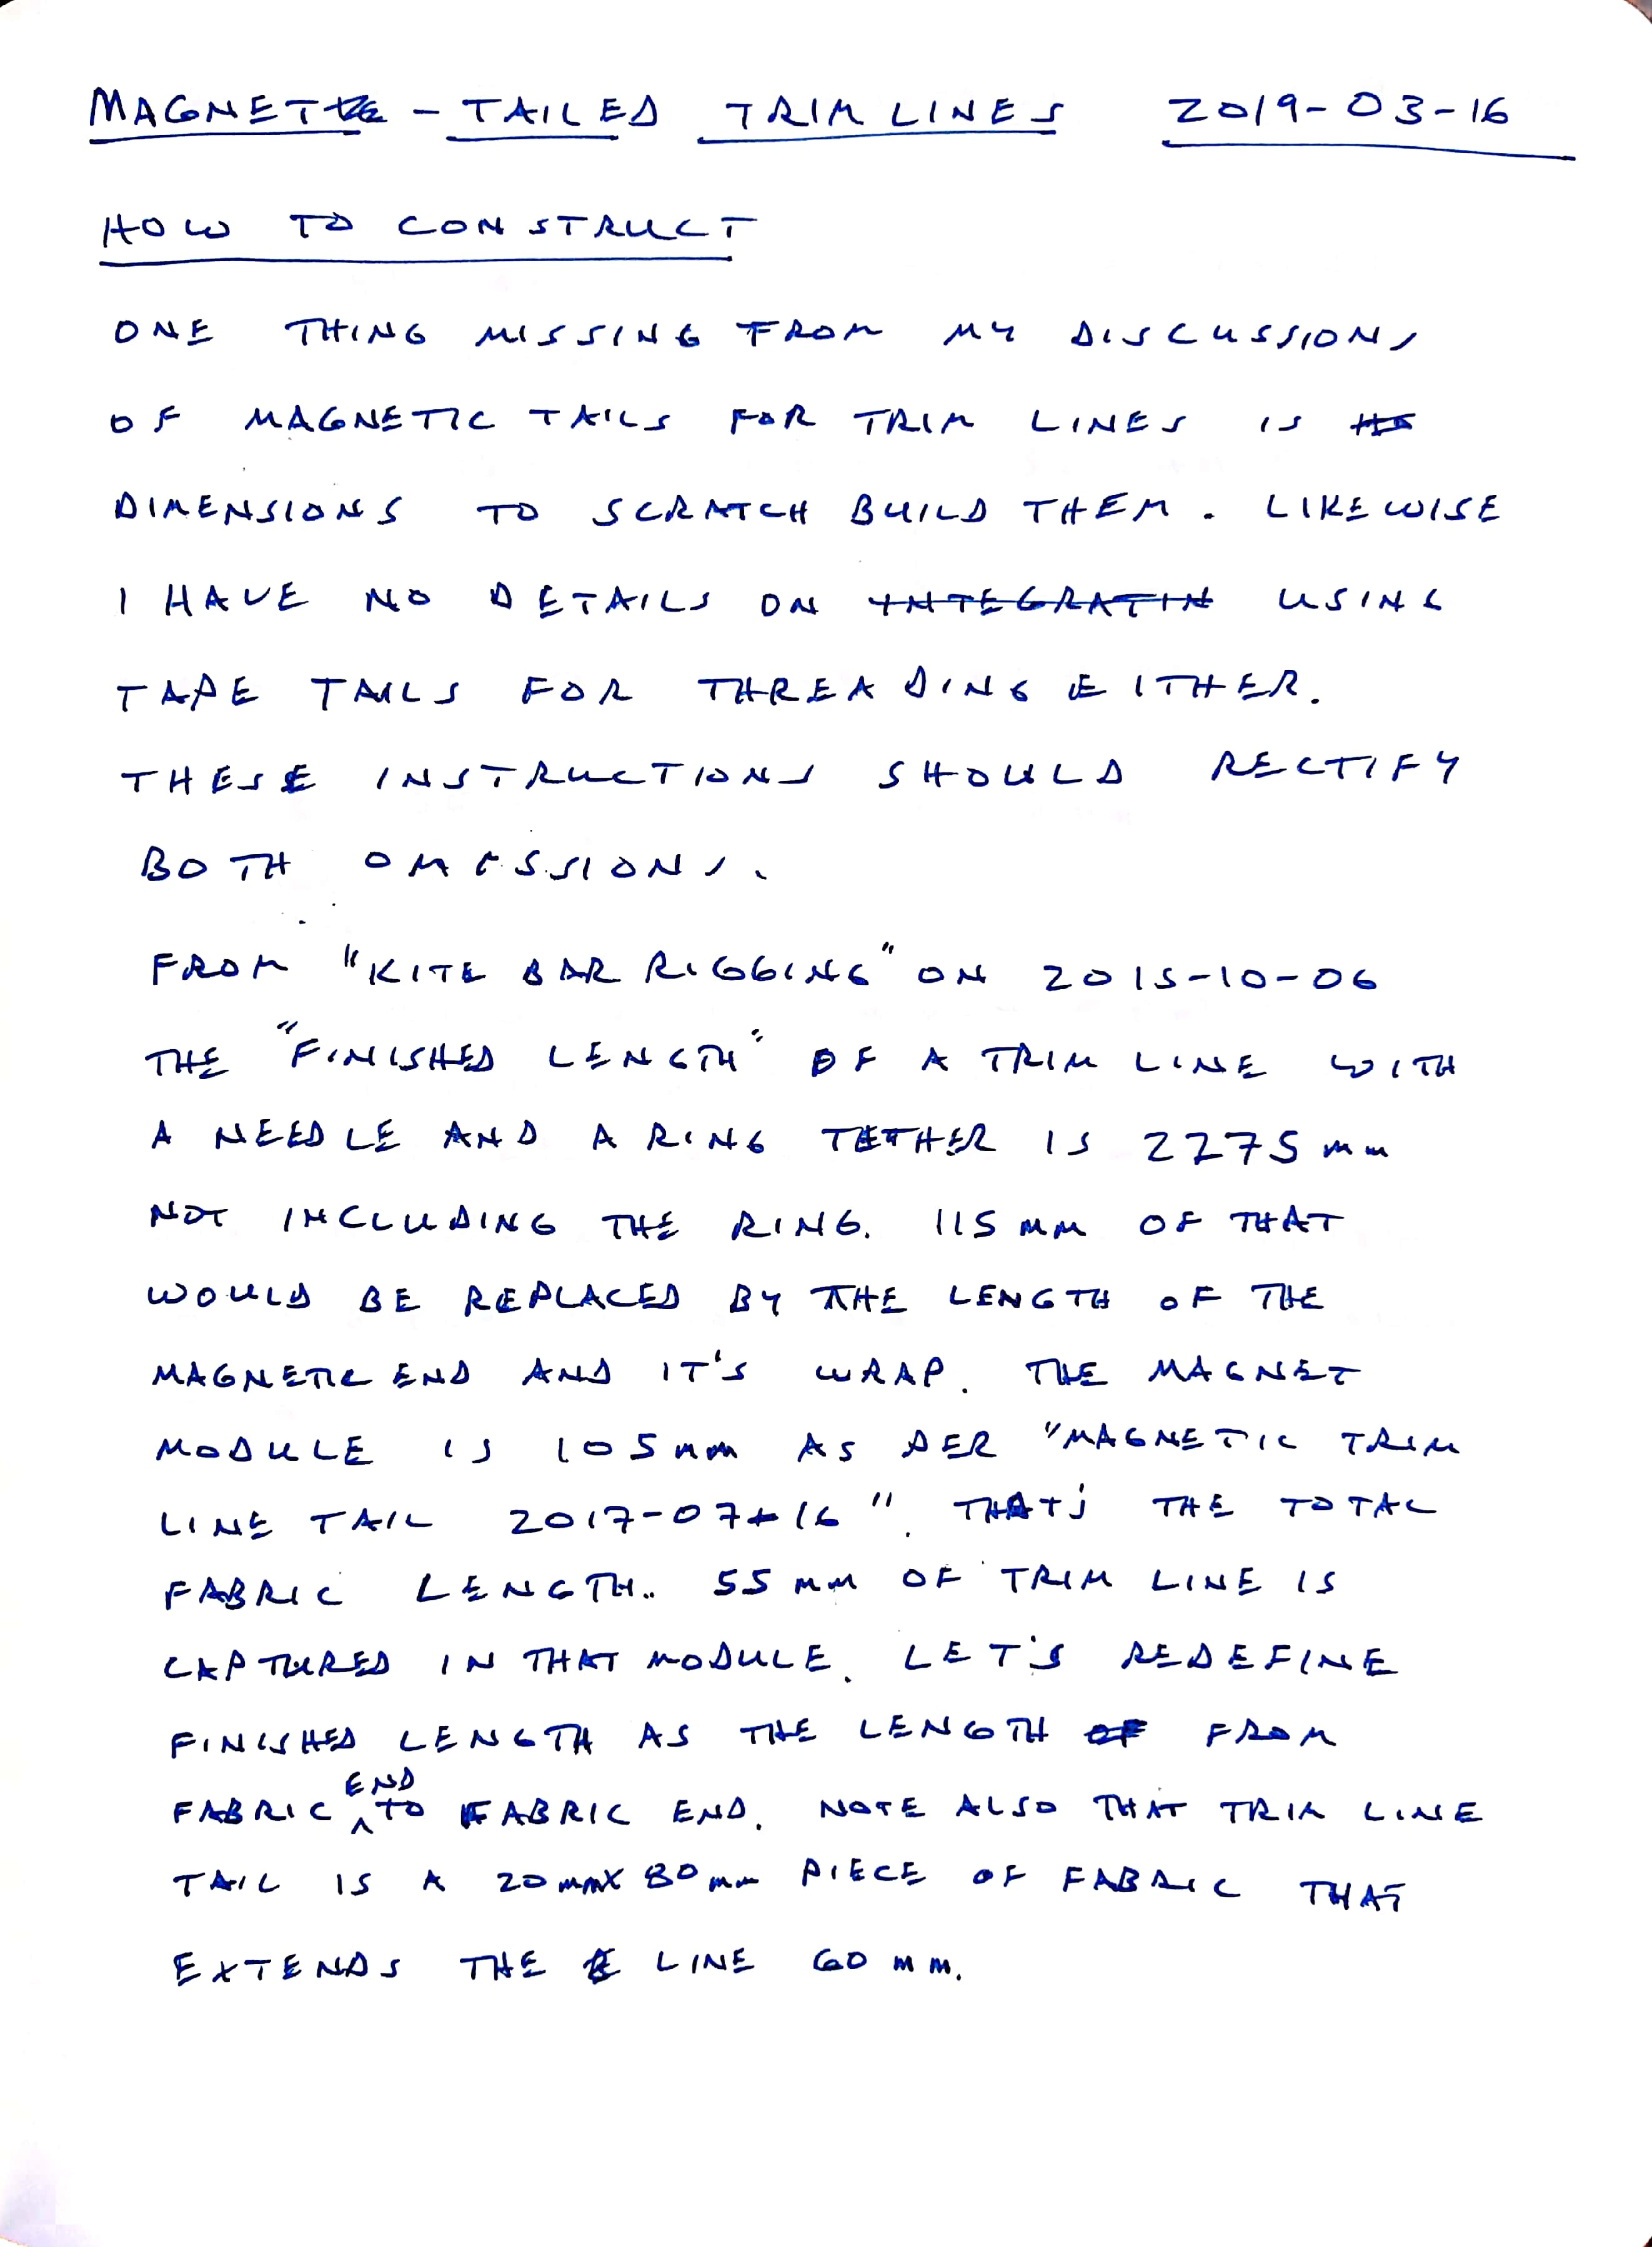 MAGNET-TAILED TRIM LINES 2019-03-16
HOW TO CONSTRUCT
ONE THING MISSING FROM MY DISCUSSIONS
OF MAGNETIC TAILS FOR TRIM LINES IS
DIMENSIONS TO SCRATCH BUILD THEM. LIKEWISE
I HAVE NO DETAILS ON INTEGRATIN USING
TAPE TAILS FOR THREADING EITHER.
THESE INSTRUCTIONS SHOULD RECTIFY
BOTH OMISSIONS.
FROM "KITE BAR RIGGING" ON 2015-10-06
THE "FINISHED LENGTH" OF A TRIM LINE WITH
A NEEDLE AND A RING TETHER IS 2275 mm
NOT INCLUDING THE RING. 115 MM OF THAT
WOULD BE REPLACED BY THE LENGTH OF THE
MAGNETIC END AND IT'S WRAP. THE MAGNET
MODULE IS 105 mm AS PER "MAGNETIC TRIM
LINE TAIL 2017-07-16". THAT'S THE TOTAL
FABRIC LENGTH. 55 MM OF TRIM LINE IS
CAPTURED IN THAT MODULE. LET'S REDEFINE
FINISHED LENGTH AS THE LENGTH OF FROM
FABRIC END TO FABRIC END. NOTE ALSO THAT TRIM LINE
TAIL IS A 20 mm X 80 mm PIECE OF FABRIC THAT
EXTENDS THE LINE 60 MM.